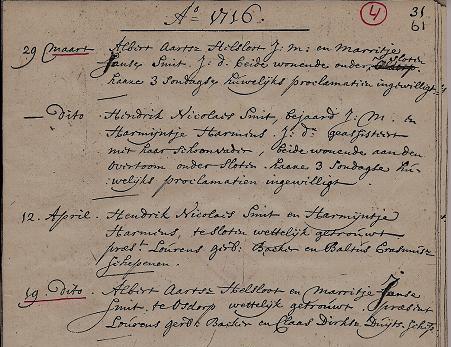 Ao 1716.
4
31
61
29 Maart Albert Aartse Helsloot J: M: en Marritje
Janse Smit. J. d: beide wonende onder Sloten
haare 3 Sondagse huwelijks proclamatien ingewilligt
— Dito Hendrik Nicolais Smit, bejaard J: M. en
Harmijntje Harmens. J: d: geassisteert
met haar schoonvader, beide wonende aan den
overtoom onder Sloten. haare 3 Sondagse hu-
welijks proclamatien ingewilligt.
12. April. Hendrik Nicolais Smit en Harmijntje
Harmens, te Sloten wettelijk getrouwt
præst. Lourens gerb: Backer en Baltus Erasmus
Schepenen.
19. Dito. Albert Aartse Helsloot en Marritje Janse
Smit. te Osdorp wettelijk getrouwt. præsent
Lourens gerb: Backer en Claas Dirkse Duijts. Schep.